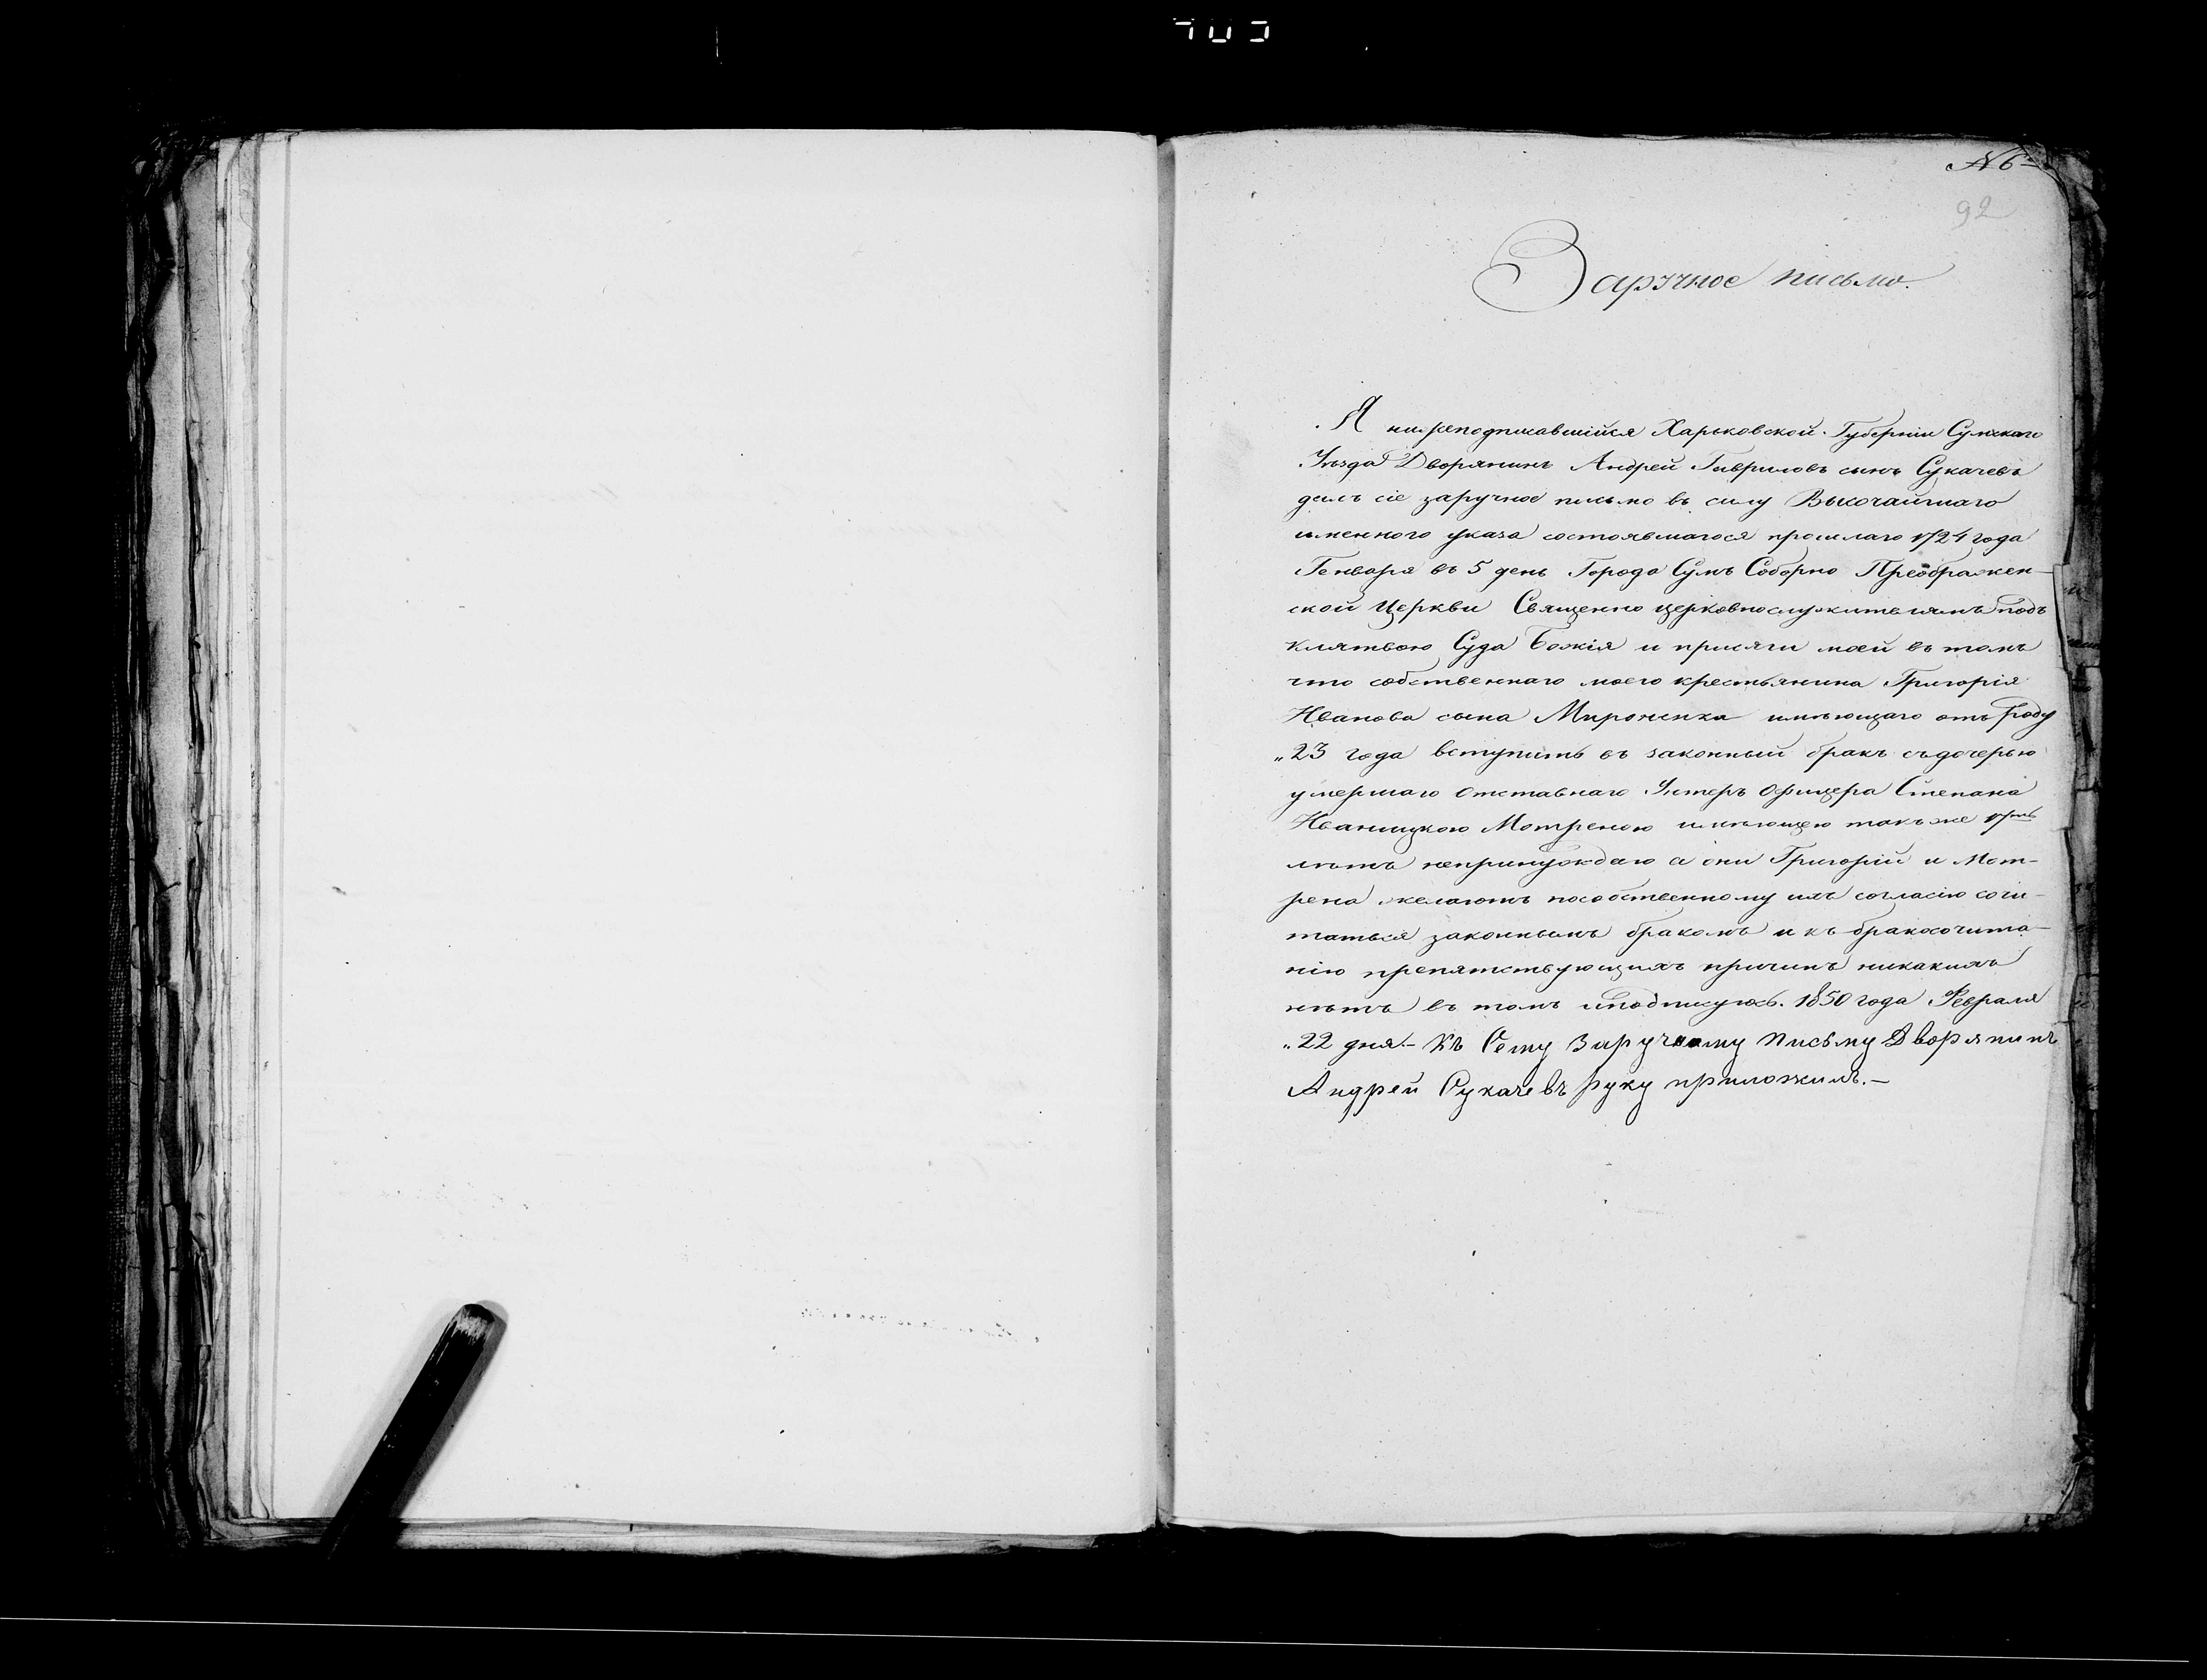 № 6
92
Заручное письмо.
Я нижеподписавшійся Харьковской Губерніи Сумскаго
Уѣзда Дворянинъ Андрей Гавриловъ сынъ Сукачевъ
далъ сіе заручное письмо въ силу Высочайшаго
именного указа состоявшагося прошлаго 1724 года
Генваря въ 5 день Города Сумъ Соборно Преображен-
ской Церкви Священно церковнослужителямъ подъ
клятвою Суда Божія и присяги моей въ томъ
что собственнаго моего крестьянина Григорія
Иванова сына Мироненка имѣющаго отъ роду
„23 года вступить въ законный бракъ съ дочерью
умершаго Отставнаго Унтеръ Офицера Степана
Иваницкою Мотреною имѣющею такъже 17ть
лѣтъ непринуждаю а они Григорій и Мот-
рена желаютъ пособственному ихъ согласію сочи-
таться законнымъ бракомъ и къ бракосочита-
нію препятствующихъ причинъ никакихъ
нѣтъ въ томъ иподпишуюсь. 1850 года Февраля
„22 дня.- Къ Сему Заручному Письму Дворянинъ
Андрей Сукачевъ руку приложилъ.-